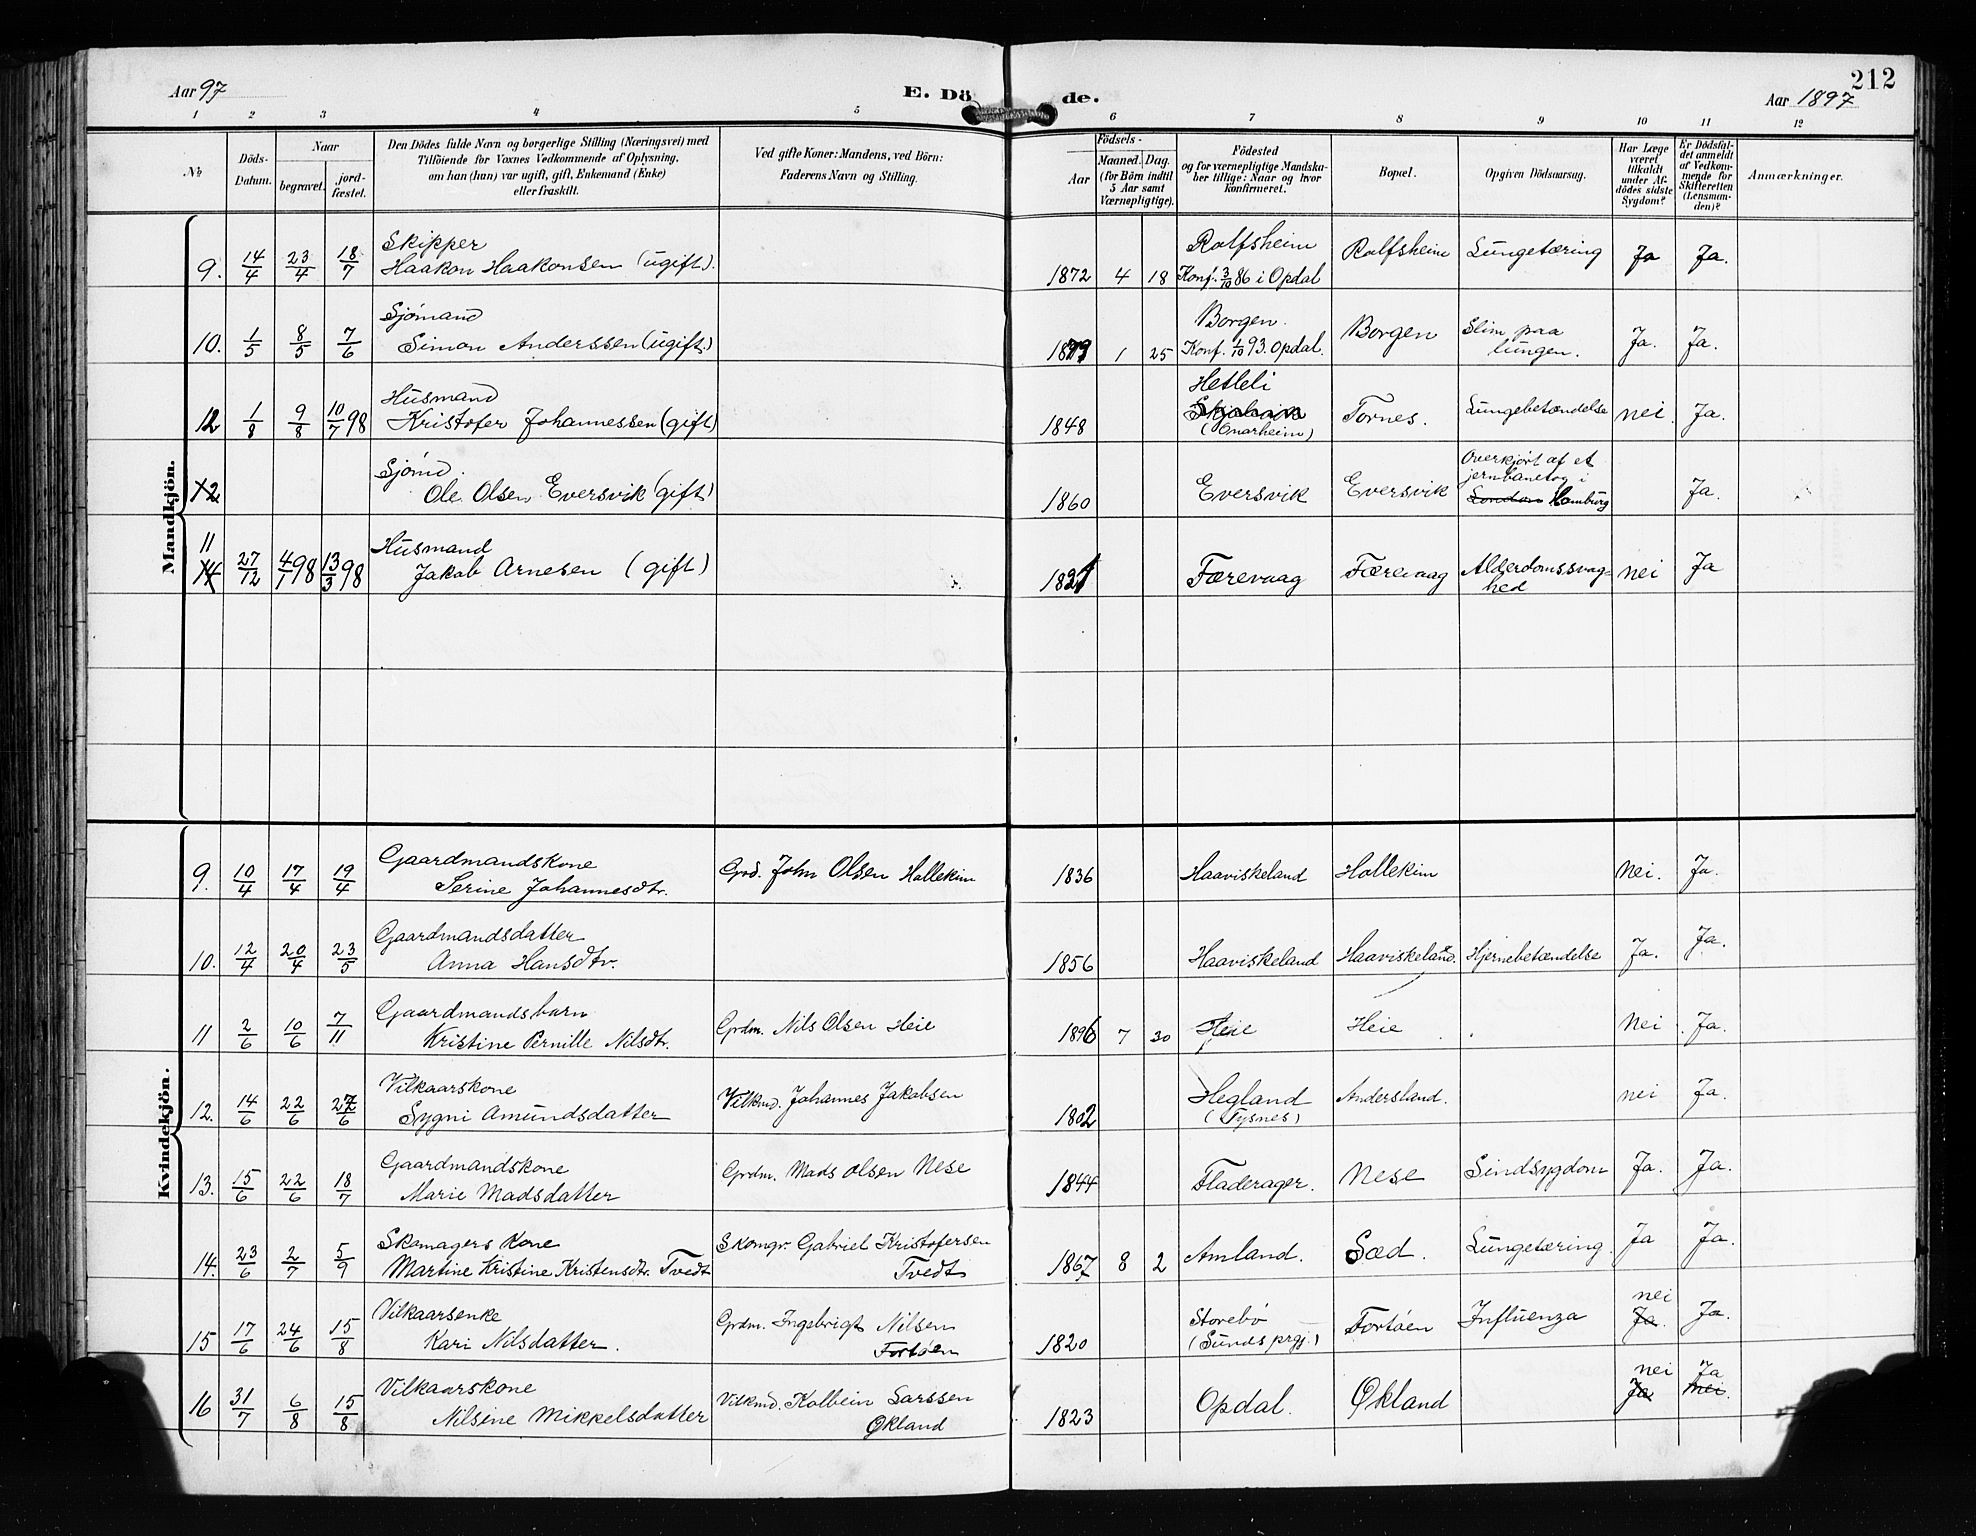 Aar 97
E. Dö de.
212
Aar 1897
1 2 3 4 5 6 7 8 9 10 11 12
No
Döds-
Datum.
Naar
begravet.
jord-
fæstet.
Den Dödes fulde Navn og borgerlige Stilling (Næringsvei) med
Tilföiende for Voxnes Vedkommende af Oplysning,
om han (hun) var ugift, gift, Enkemand (Enke)
eller fraskilt.
Ved gifte Koner: Mandens, ved Börn:
Faderens Navn og Stilling.
Födsels-
Aar
Maaned. Dag.
(for Börn indtil
5 Aar samt
Værnepligtige).
Födested
og for værnepligtige Mandska-
ber tillige: Naar og hvor
konfirmeret.
Bopæl.
Opgiven Dödsaarsag.
Har Læge
været
tilkaldt
under Af-
dödes sidste
Sygdom?
Er Dödsfal-
det anmeldt
af Vedkom-
mende for
Skifteretten
(Lensman-
den)?
Anmærkninger.
Mandkjön.
9. 14/4 23/4 18/7 Skipper
Haakon Haakonsen (ugift). 1872 4 18 Rolfsheim
Konf. 3/10 86 i Opdal Rolfsheim Lungetæring Ja Ja.
10. 1/5 8/5 7/6 Sjömand
Simon Anderssen (ugift.) 1879 1 25 Borgen.
Konf. 1/10 93. Opdal. Borgen Slim paa
lungen. Ja. Ja.
12 1/8 9/8 10/7 98 Husmand
Kristofer Johannessen (gift) 1848 Hetleli
(Onarheim) Tornes. Lungebetændelse nei. Ja.
12 Sjömd.
Ole Olsen Eversvik (gift) 1860 Eversvik Eversvik Overkjört af et
jernbanetog i
London Hamburg Ja.
11
14 27/12 4/1 98 13/3 98 Husmand
Jakob Arnesen (gift) 1821 Færevaag Færevaag Alderdomssvag-
hed nei Ja
Kvindekjön.
9. 10/4 17/4 19/4 Gaardmandskone
Serine Johannesdtr. Grd. John Olsen Hallekim 1836 Haaviskeland Hallekim nei. Ja.
10. 12/4 20/4 23/5 Gaardmandsdatter
Anna Hansdtr. 1856 Haaviskeland Haaviskeland. Hjernebetændelse Ja. Ja.
11 2/6 10/6 7/11 Gaardmandsbarn
Kristine Pernille Nilsdtr. Grdm. Nils Olsen Heie 1896 7 30 Heie Heie nei Ja.
12. 14/6 22/6 27/6 Vilkaarskone
Sygni Amundsdatter Vilkmd. Johannes Jakobsen 1802 Hegland
(Tysnes) Andersland. nei Ja.
13. 15/6 22/6 18/7 Gaardmandskone
Marie Madsdatter Grdm. Mads Olsen Nese 1844 Fladerager. Nese Sindsygdom Ja. Ja.
14. 23/6 2/7 5/9 Skomagers Kone
Martine Kristine Kristensdtr. Tvedt Skomgr. Gabriel Kristofersen
Tvedt 1867 8 2 Amland. Sæd. Lungetæring. Ja Ja.
15 17/6 24/6 15/8 Vilkaarsenke
Kari Nilsdatter. Grdm. Ingebrigt Nilsen
Fortöen 1820 Storebö
(Sunds prgj.) Fortöen Influenza nei
Ja. Ja.
16 31/7 6/8 15/8 Vilkaarskone
Nilsine Mikkelsdatter Vilkmd. Kolbein Larssen
Økland 1823 Opdal. Økland nei
Ja Ja
nei.